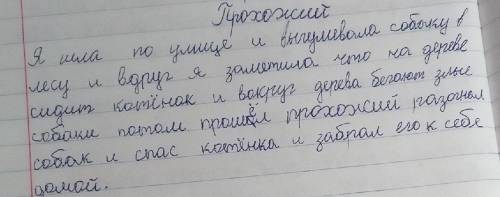 Прохожий
Я шла по улице и выгумевала собачку в
лесу и вдруг я заметила что на дереве
сидит котёнок и вакруг дерева бегают злые
собаки потом прошёл прохожий разогнал
собак и спас котёнка и забрал его к себе
домой.